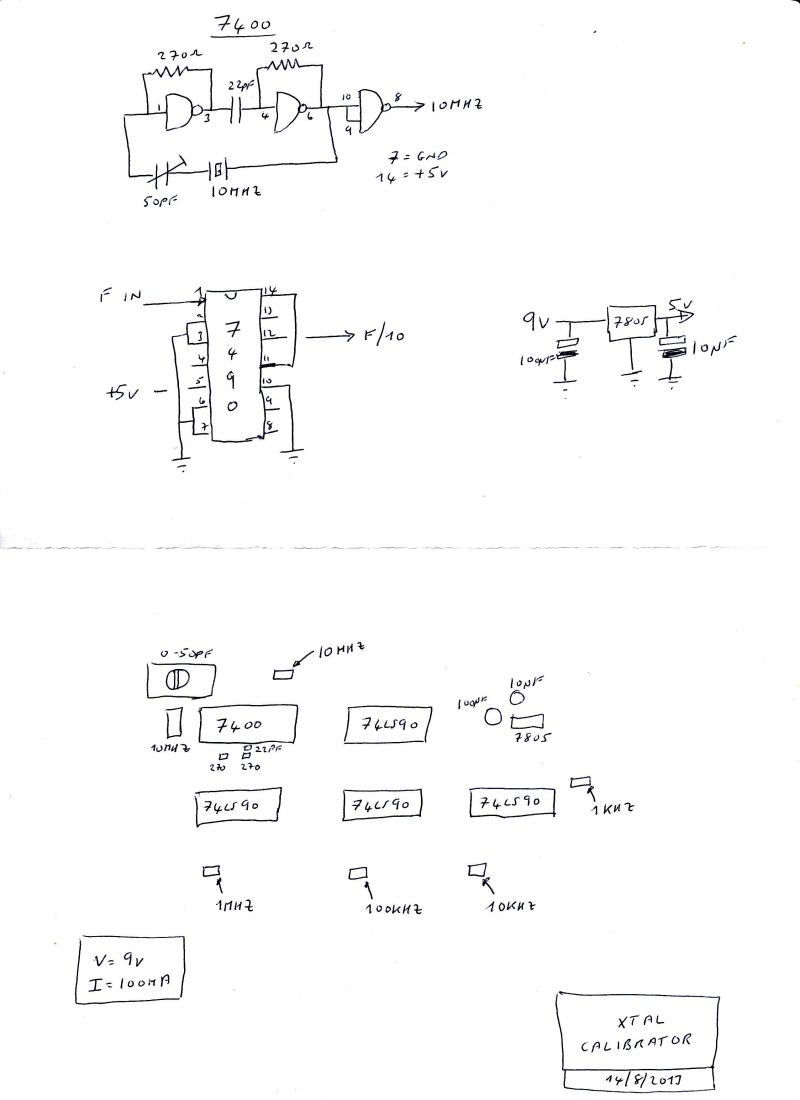 7400
270Ω 270Ω
22PF
1 3 4 6 10 9 8 10MHZ
7 = GND
14 = +5V
50PF 10MHZ
F IN 1 14
2 13
3 7 12 F/10
4 4 11
+5V 5 9 10
6 0 9
7 8
9V 7805 5V
100NF 10NF
0-50PF 10MHZ
10NF
100NF
7400 74LS90 7805
10MHZ 22PF
270 270
74LS90 74LS90 74LS90
1KHZ
1MHZ 100KHZ 10KHZ
V= 9V
I= 100MA
XTAL
CALIBRATOR